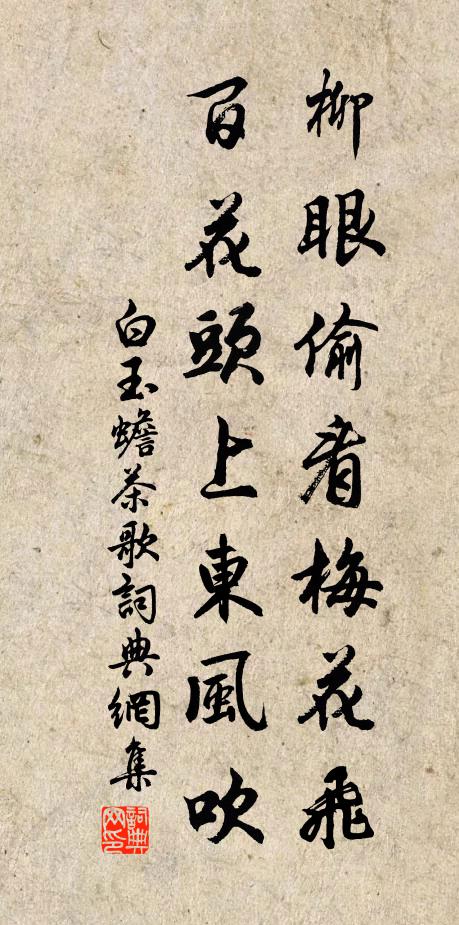 柳眼偷看梅花飛
百花頭上東風吹
白玉蟾茶歌詞典網集
詞典网印